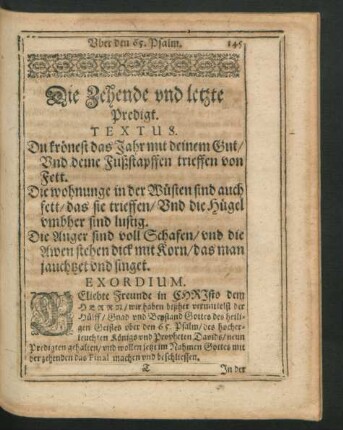 Vber den 65. Psalm. 145
Die Zehende vnd letzte
Predigt.
TEXTUS.
Du krönest das Jahr mit deinem Gut/
Vnd deine Fußstapffen trieffen von
Fett.
Die wohnunge in der Wüsten sind auch
fett/das sie trieffen/Vnd die Hügel
vmbher sind lustig.
Die Anger sind voll Schafen/vnd die
Awen stehen dick mit Korn/das man
jauchtzet vnd singet.
EXORDIUM.
GEliebte Freunde in CHRJsto dem
HERRN/wir haben bißher vermittelst der
Hülff/Gnad vnd Beystand Gottes des heili-
gen Geistes vber den 65. Psalm/des hocher-
leuchten Königs vnd Propheten Davids/neun
Predigten gehalten/vnd wollen jetzt im Nahmen Gottes mit
der zehenden das Final machen vnd beschliessen.
In der